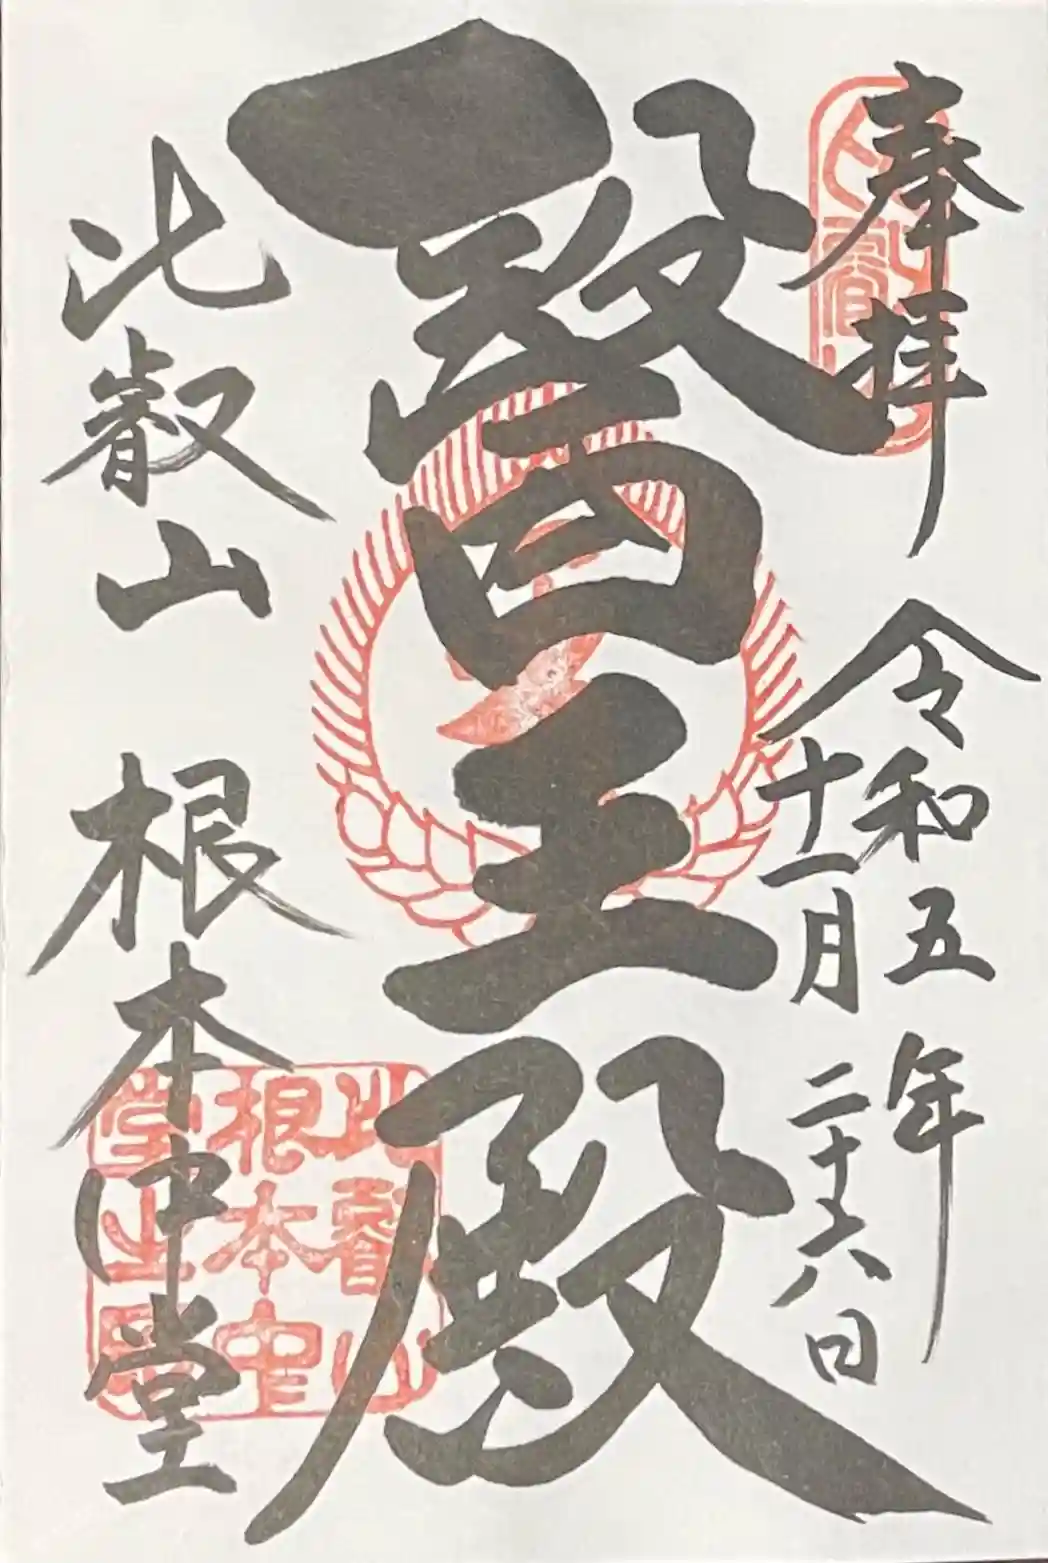 奉拝
令和五年
十一月二十六日
醫王殿
比叡山 根本中堂
比叡山
根本中
堂之印